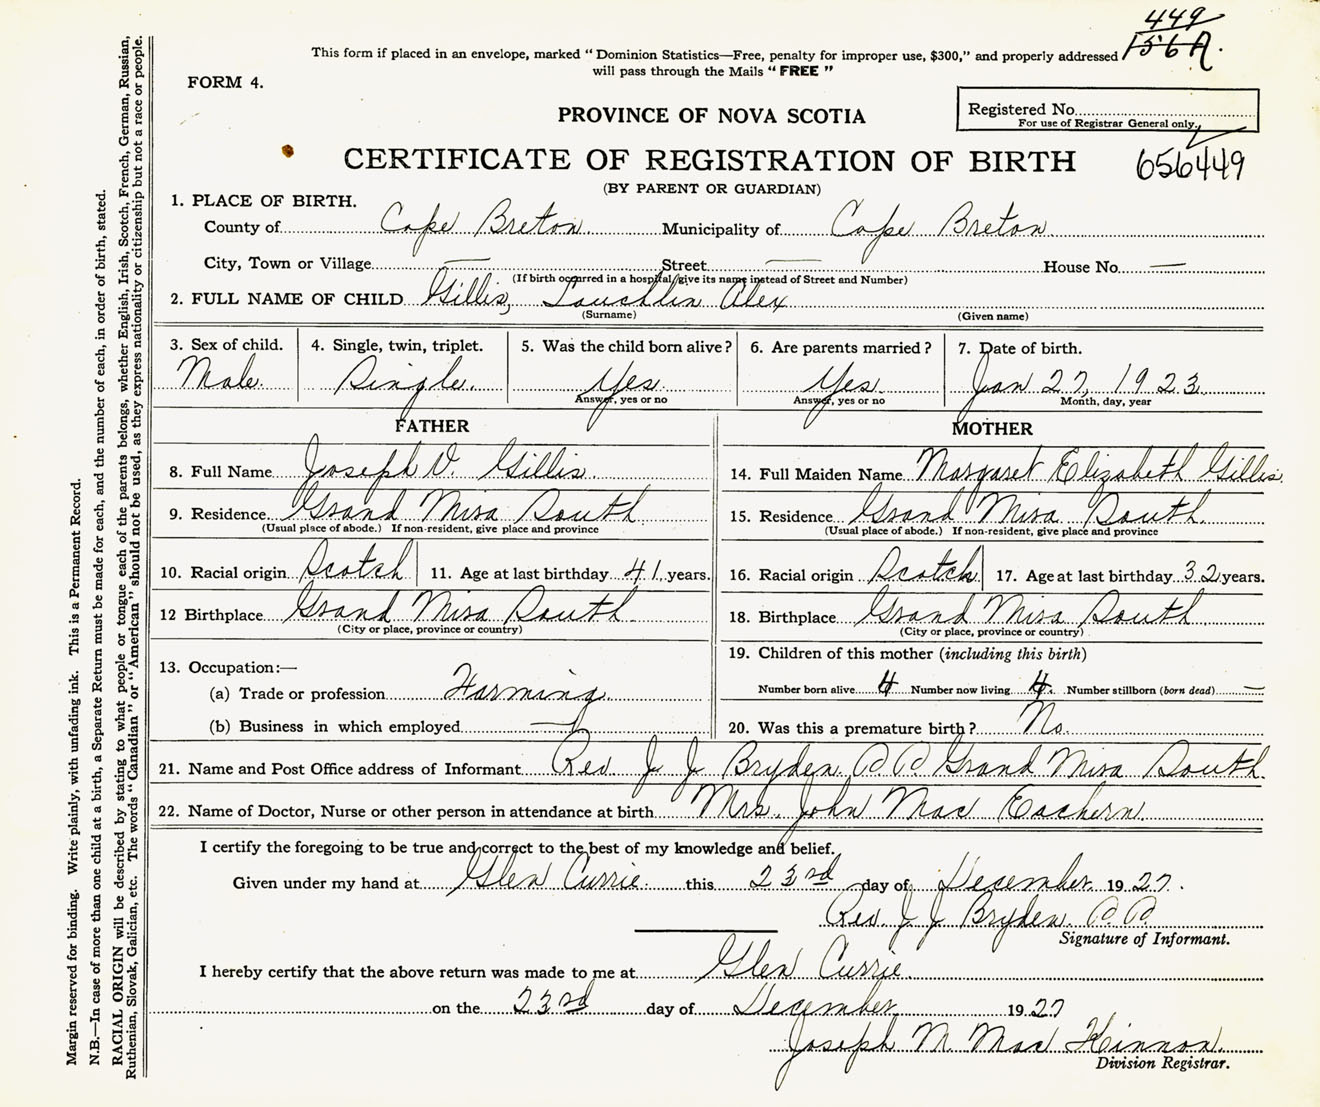 449
156A.
This form if placed in an envelope, marked "Dominion Statistics—Free, penalty for improper use, $300," and properly addressed
will pass through the Mails "FREE"
FORM 4.
PROVINCE OF NOVA SCOTIA
Registered No.
For use of Registrar General only.
CERTIFICATE OF REGISTRATION OF BIRTH
656449
(BY PARENT OR GUARDIAN)
1. PLACE OF BIRTH.
County of Cape Breton Municipality of Cape Breton
City, Town or Village — Street — House No. —
(If birth occurred in a hospital give its name instead of Street and Number)
2. FULL NAME OF CHILD Gillis, Lauchlin Alex
(Surname) (Given name)
3. Sex of child. 4. Single, twin, triplet. 5. Was the child born alive? 6. Are parents married? 7. Date of birth.
Male. Single. Yes. Yes Jan 27, 1923
Answer, yes or no Answer, yes or no Month, day, year
FATHER MOTHER
8. Full Name Joseph V. Gillis. 14. Full Maiden Name Margaret Elizabeth Gillis
9. Residence Grand Mira South 15. Residence Grand Mira South
(Usual place of abode.) If non-resident, give place and province (Usual place of abode.) If non-resident, give place and province
10. Racial origin Scotch 11. Age at last birthday 41 years. 16. Racial origin Scotch 17. Age at last birthday 32 years.
12 Birthplace Grand Mira South 18. Birthplace Grand Mira South
(City or place, province or country) (City or place, province or country)
13. Occupation:— 19. Children of this mother (including this birth)
(a) Trade or profession Farming Number born alive 4 Number now living 4. Number stillborn (born dead) —
(b) Business in which employed — 20. Was this a premature birth? No.
21. Name and Post Office address of Informant Rev J J Bryden P P Grand Mira South
22. Name of Doctor, Nurse or other person in attendance at birth Mrs. John Mac Eachern
I certify the foregoing to be true and correct to the best of my knowledge and belief.
Given under my hand at Glen Currie this 23rd day of December 1927.
Rev J J Bryden P P.
Signature of Informant.
I hereby certify that the above return was made to me at Glen Currie
on the 23rd day of December 1927
Joseph M Mac Kinnon
Division Registrar.
Margin reserved for binding. Write plainly, with unfading ink. This is a Permanent Record.
N.B.—In case of more than one child at a birth, a Separate Return must be made for each, and the number of each, in order of birth, stated.
RACIAL ORIGIN will be described by stating to what people or tongue each of the parents belongs, whether English, Irish, Scotch, French, German, Russian,
Ruthenian, Slovak, Galician, etc. The words "Canadian" or "American" should not be used, as they express nationality or citizenship but not a race or people.